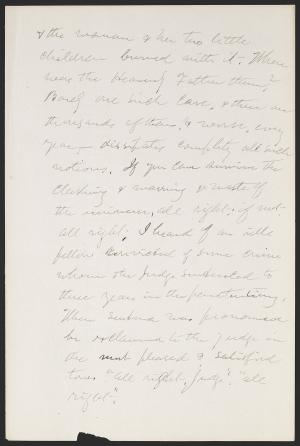 & the woman & her two little
children burned with it. Where
was the Heavenly Father then?
Barely one such case, & there are
thousands of them, & worse, every
year, dissipates completely all such
notions. If you can survive the
clashing & warring & waste of
the universe, all right; if not
all right. I heard of an idle
fellow convicted of some crime
whom the Judge sentenced to
three years in the penitentiary.
When sentence was pronounced
he exclaimed to the Judge in
the most pleased & satisfied
tones "all right, Judge", "all
right".